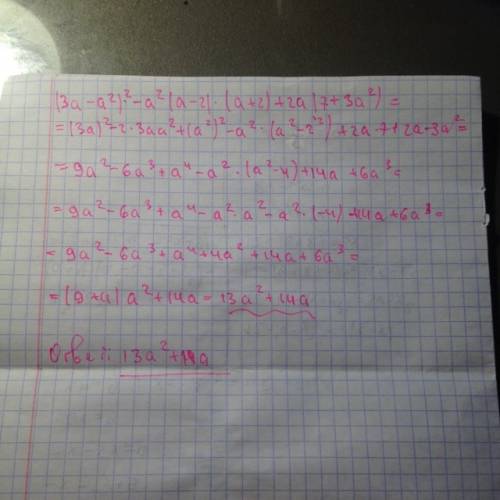 (3a-a²)²-a²(a-2)·(a+2)+2a(7+3a²)=
=(3a)²-2·3aa²+(a²)²-a²·(a²-2²)+2a·7+2a·3a²=
=9a²-6a³+a⁴-a²·(a²-4)+14a+6a³=
=9a²-6a³+a⁴-a²·a²-a²·(-4)+14a+6a³=
=9a²-6a³+a⁴+4a²+14a+6a³=
=(9+4)a²+14a=13a²+14a
Ответ: 13a²+14a